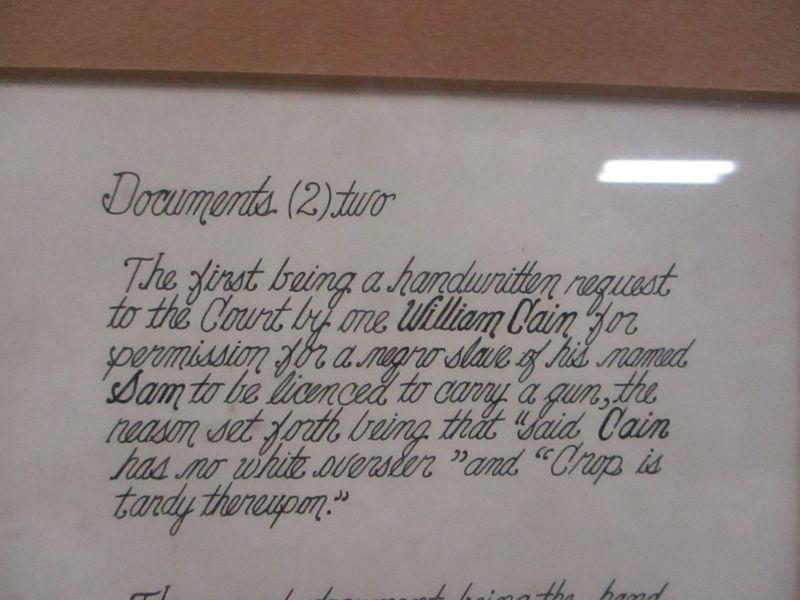 Documents (2) two
The first being a handwritten request
to the Court by one William Cain for
permission for a negro slave of his named
Sam to be licenced to carry a gun, the
reason set forth being that "said Cain
has no white overseer" and "Crop is
tardy thereupon."
The document being the hand